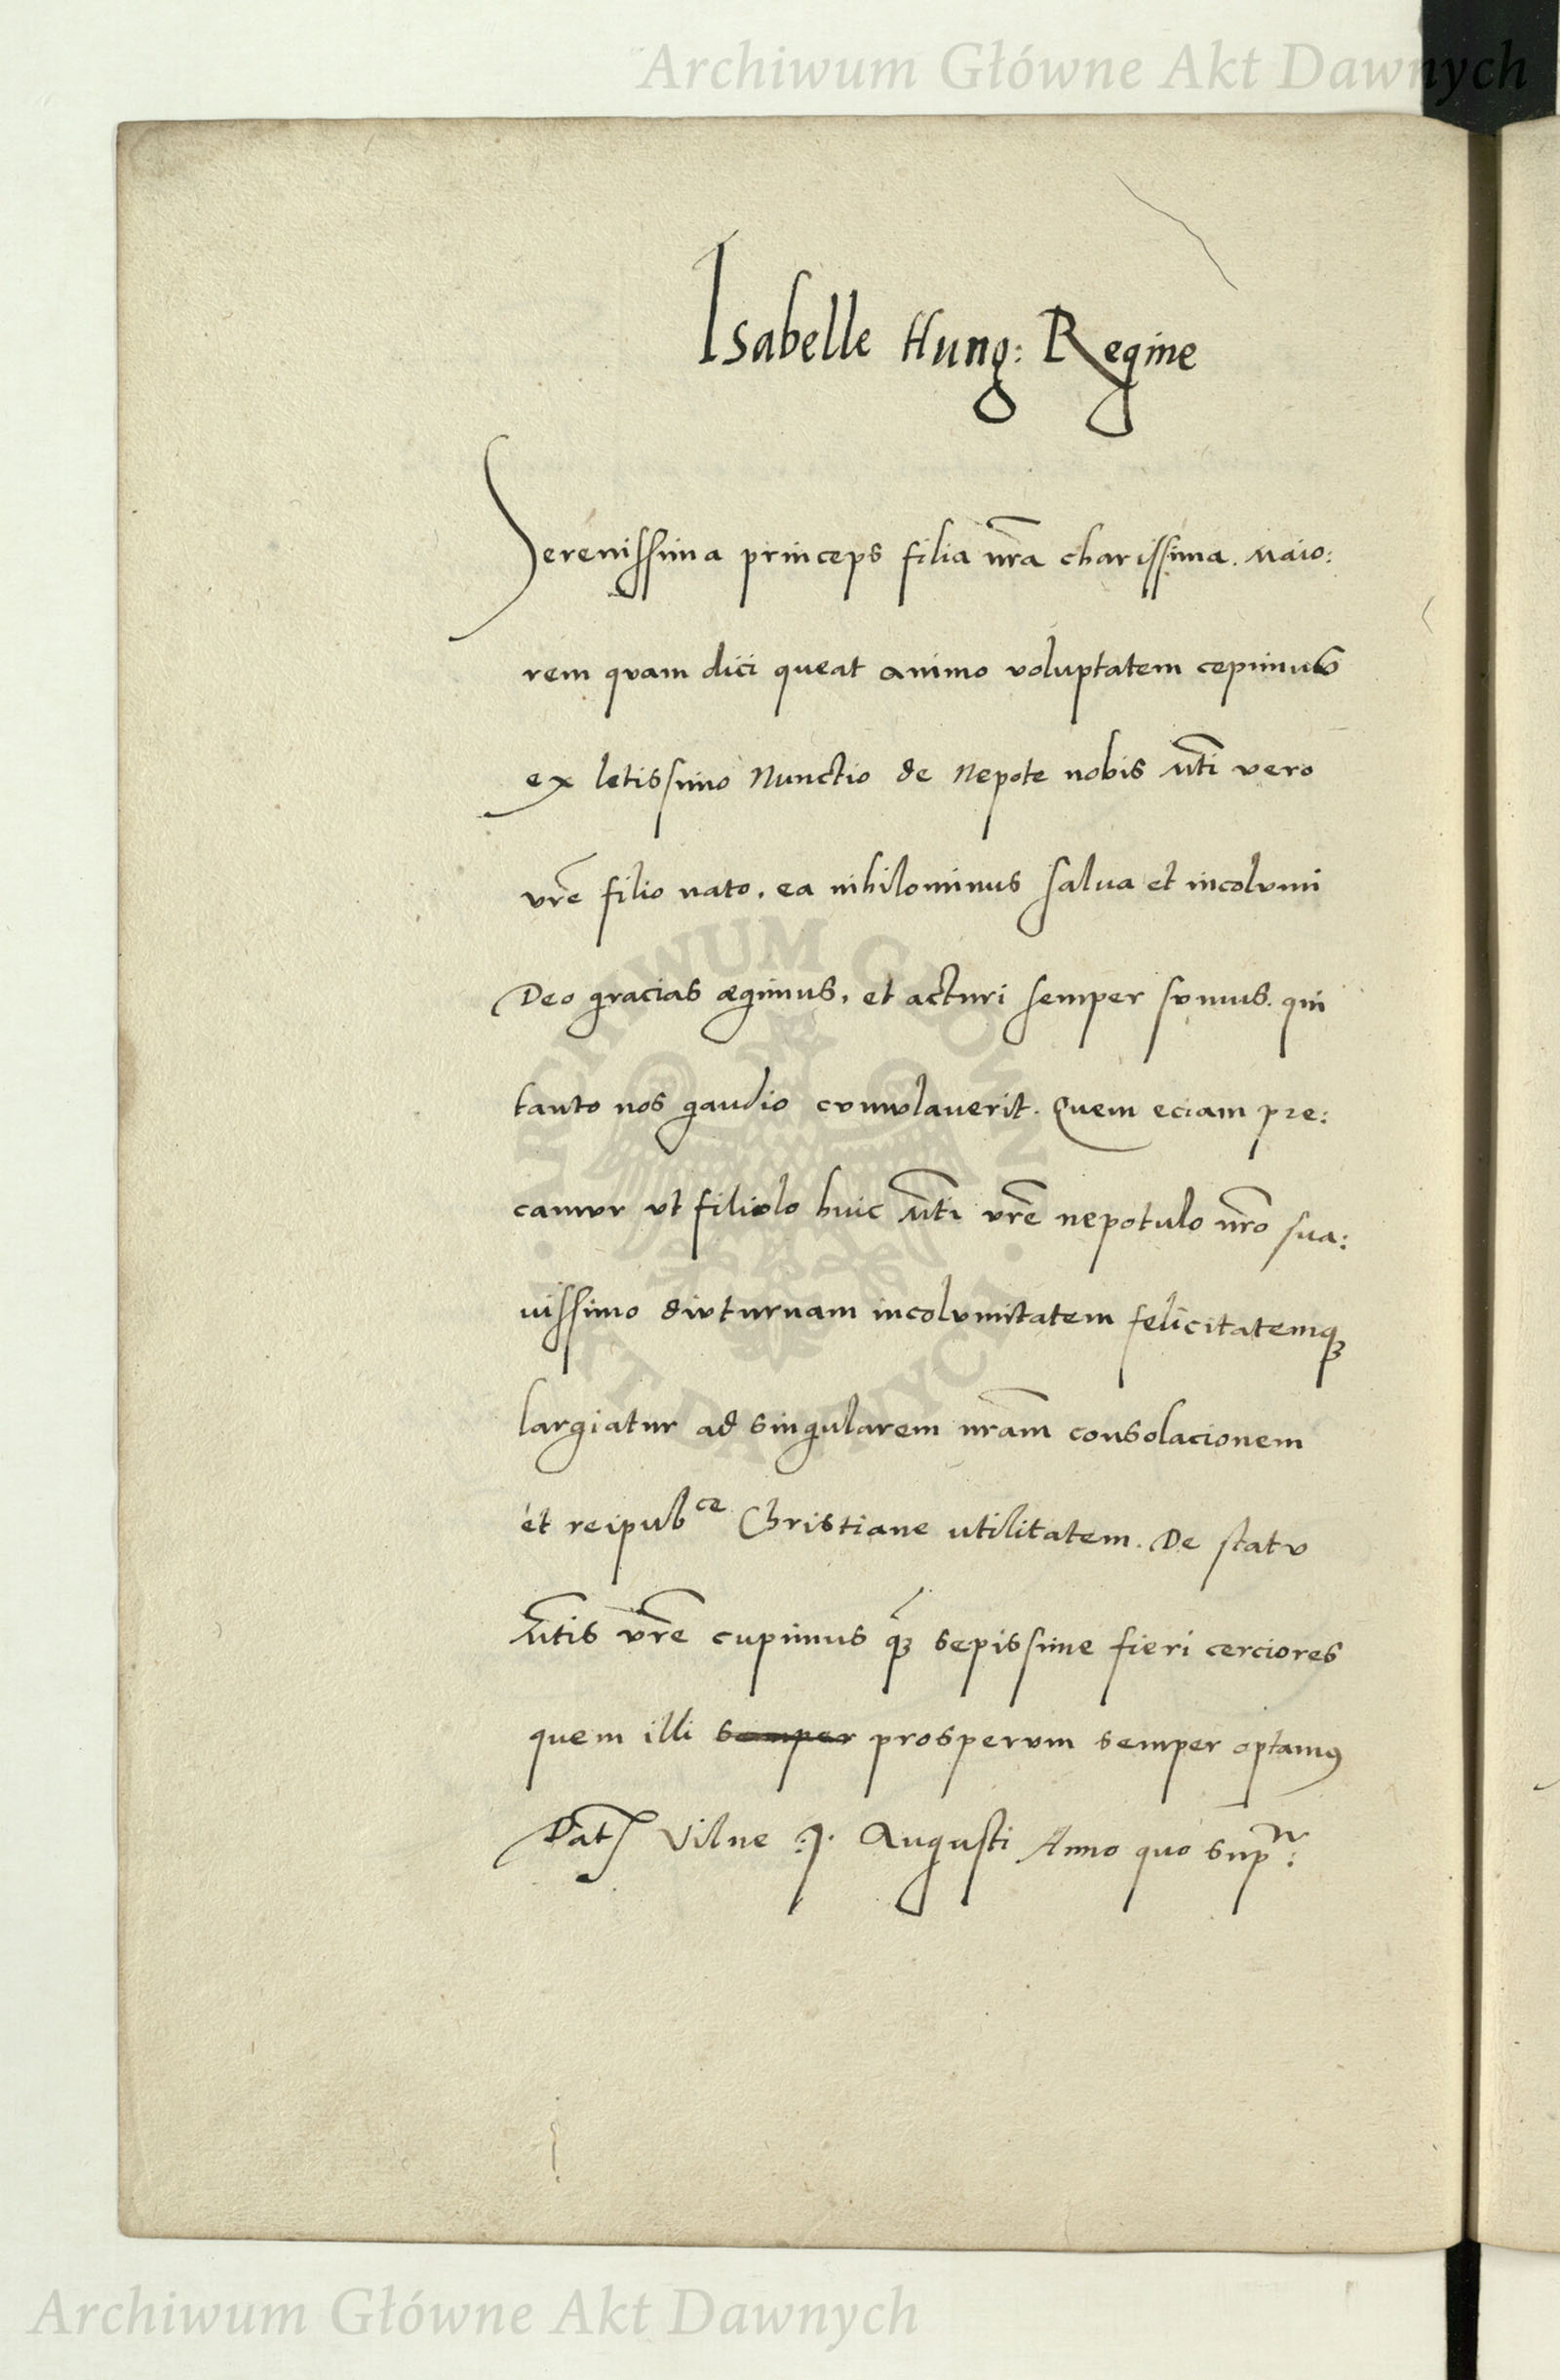 Archiwum Główne Akt Dawnych
Isabelle Hung: Regine
Serenissima princeps filia nra charissima. Maio:
rem quam dici queat animo voluptatem cepimus
ex letissimo Nunctio de Nepote nobis Mti vero
vre filio nato. ea nihilominus salua et incolumi
Deo gracias ægimus, et acturi semper sumus. qui
tanto nos gaudio cumulauerit. Quem eciam pre:
camur ut filiolo huic Mti vre nepotulo nro sua:
uissimo diuturnam incolumitatem felicitatemq3
largiatur ad singularem nram consolacionem
et reipub^ce Christiane utilitatem. De statu
Mtis vre cupimus q3 sepissime fieri cerciores
quem illi semper prosperum semper optamus
Dat Vilne Augusti Anno quo sup:
ARCHIWUM GŁÓWNE AKT DAWNYCH
Archiwum Główne Akt Dawnych